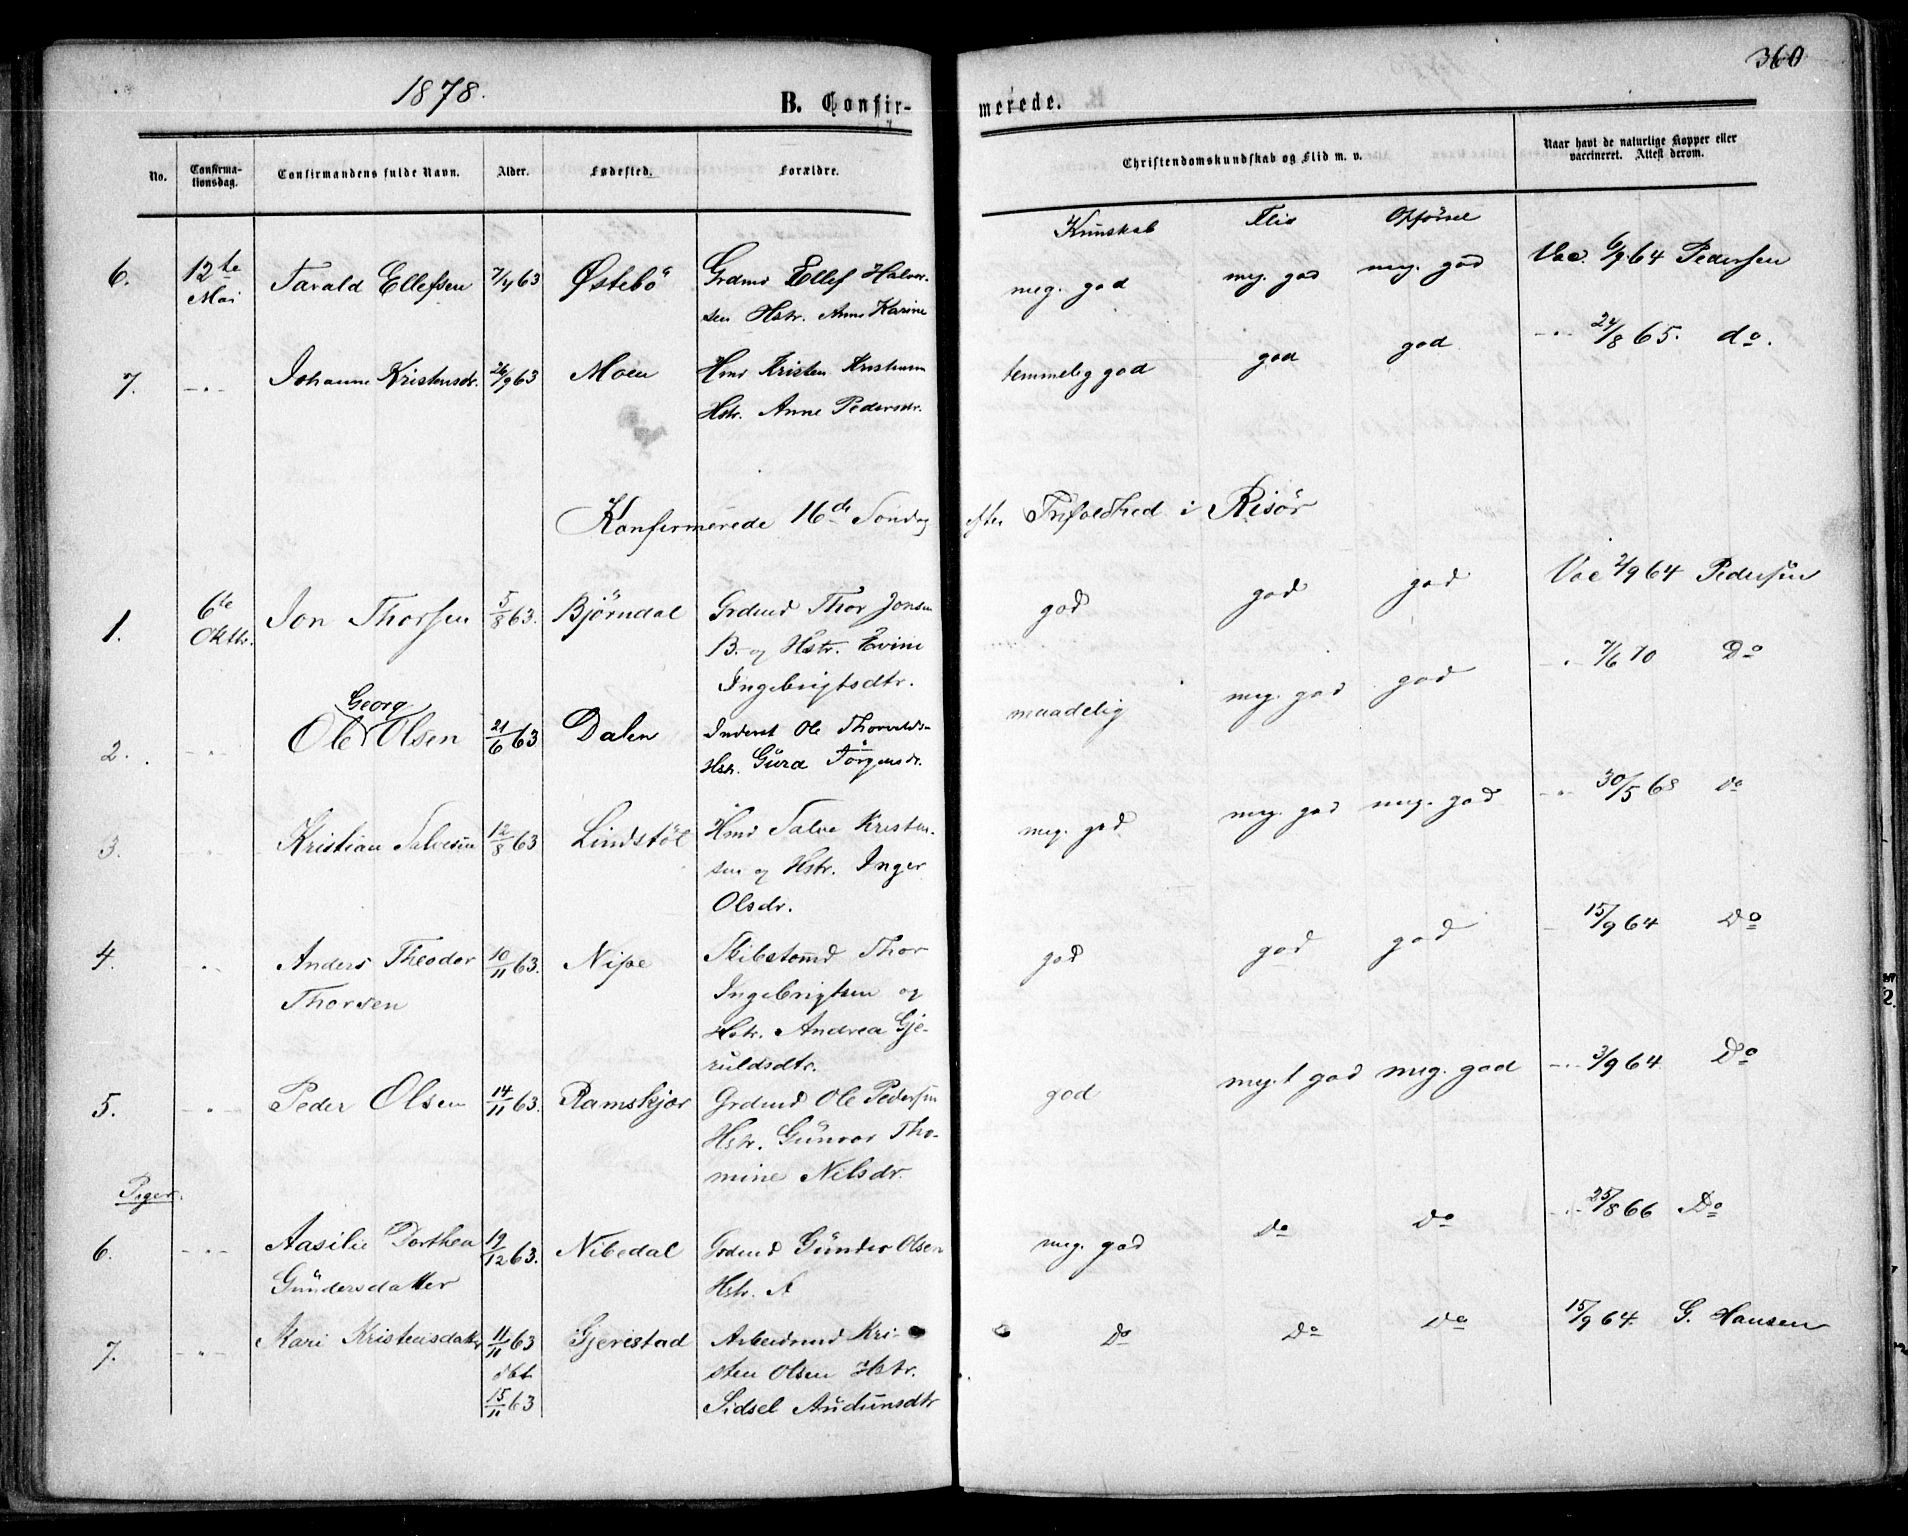 1878.
360
B. Confir-
merede.
No.
Confirma-
tionsdag.
Confirmandens fulde Navn.
Alder.
Fødested.
Forældre.
Christendomskundskab og Flid m. v.
Naar havt de naturlige Kopper eller
vaccineret. Attest derom.
Kunskab Flid Opförsel
6. 12te Mai Tarald Ellefsen 7/4 63 Östebö Grdmd Ellef Halvor-
sen Hstr. Anne Karine
meg. god meg. god meg. god Vac. 6/9 64 Pedersen
7. -"- Johanne Kristensdr. 26/9 63 Moen Hmd Kristen Kristensen
Hstr. Anne Pedersdr.
temmelig god god god -"- 24/8 65. do.
Konfirmerede 16de Söndag efter Trifoldhed i Risör
1. 6te Oktbr. Jon Thorsen 5/8 63. Björndal Grdmd Thor Jonsen
B. og Hstr. Evine
Ingebrigtsdtr.
god god god Vac 2/9 64 Pedersen
2. " Ole Georg Olsen 21/6 63 Dalen Inderst Ole Thorvalds-
Hstr. Gurd Jörgensdr.
maadelig meg. god god " 7/6 70 Do
3. " Kristian Salvesen 12/8 63 Lindstöl Hmd Salve Kristen-
sen og Hstr. Inger
Olsdr.
meg. god meg. god meg. god -"- 30/5 68 do
4. " Anders Theodor
Thorsen 10/11 63. Nipe Skibstømd Thor
Ingebrigtsen og
Hstr. Andrea Gje-
ruldsdtr.
god god god - 15/9 64 Do
5. " Peder Olsen 14/11 63. Ramskjær Grdmd Ole Pedersen
Hstr. Gunvor Tho-
mine Nilsdr.
god meget god meg. god -"- 3/9 64 Do
Piger.
6. -"- Aasilie Dorthea
Gundersdatter 19/12 63. Nibedal Grdmd Gunder Olsen
Hstr. A
meg. god do Do -"- 25/8 66 Do
7. -"- Kari Kristensdatter 11/11 63
dbt
15/11 63 Gjerestad Arbeidsmd Kri-
sten Olsen Hstr.
Sidsel Audunsdtr
Do Do Do 15/9 64. G. Hansen